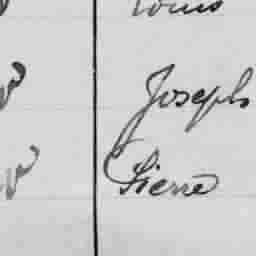 Louis
Joseph
Pierre